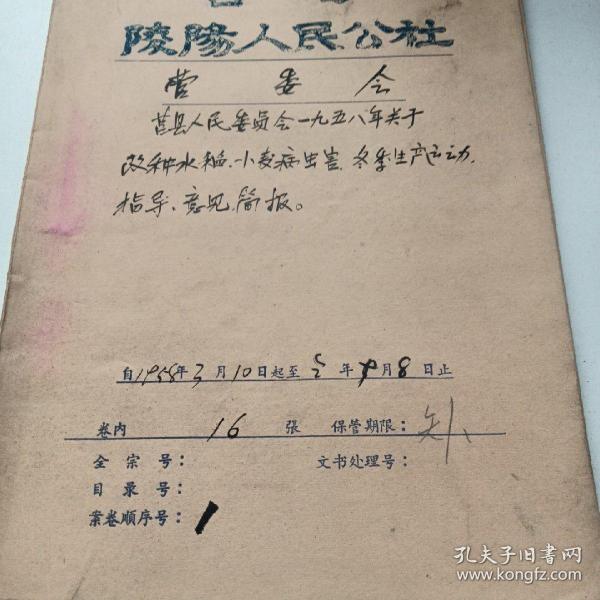 陵陽人民公社
营委会
莒县人民委员会一九五八年关于
改种水稻、小麦病虫害、冬季生产运动、
指导、意见、简报。
自1958年3月10日起至 年 月8日止
卷内 16 張 保管期限：
全宗号： 文书处理号：
目录号：
案卷顺序号：1
孔夫子旧书网
www.kongfz.com